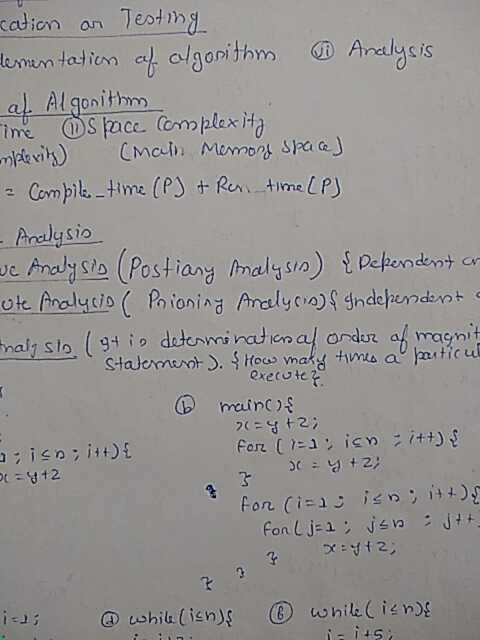 cation or Testing
lementation of algorithm (vi) Analysis
of Algorithm
Time (ii) Space Complexity
mplexity) (Main Memory space)
= Compile_time (P) + Run_time (P)
Analysis
ve Analysis (Postiary Analysis) { Dependent on
ute Analysis ( Prioriny Analysis) { Independent o
Analysis ( It is determination of order of magnit
statement). { How many times a particul
execute }.
(b) main() {
x = y + 2;
1; i ≤ n; i++) {
for ( i=1; i ≤ n ; i++) {
x = y + 2
x = y + 2;
}
for (i=1; i ≤ n; i++) {
for (j=1; j ≤ n ; j++
x = y + 2;
}
} }
i=1; (d) while (i≤n) { (f) while ( i≤n) {
i = i+5;